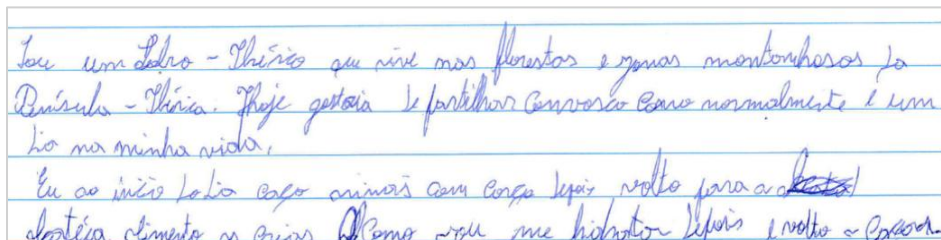 Sou um Lobro-Ibérico que vive nas florestas e zonas montonhosas da
Penísula-Ibérica. Hoje gostaria de partilhar convosco como normalmente é um
dia na minha vida.
Eu ao início do dia caço animais com corço depois volto para a
alimento as crias como vou me hidratar depois e volto a caçar